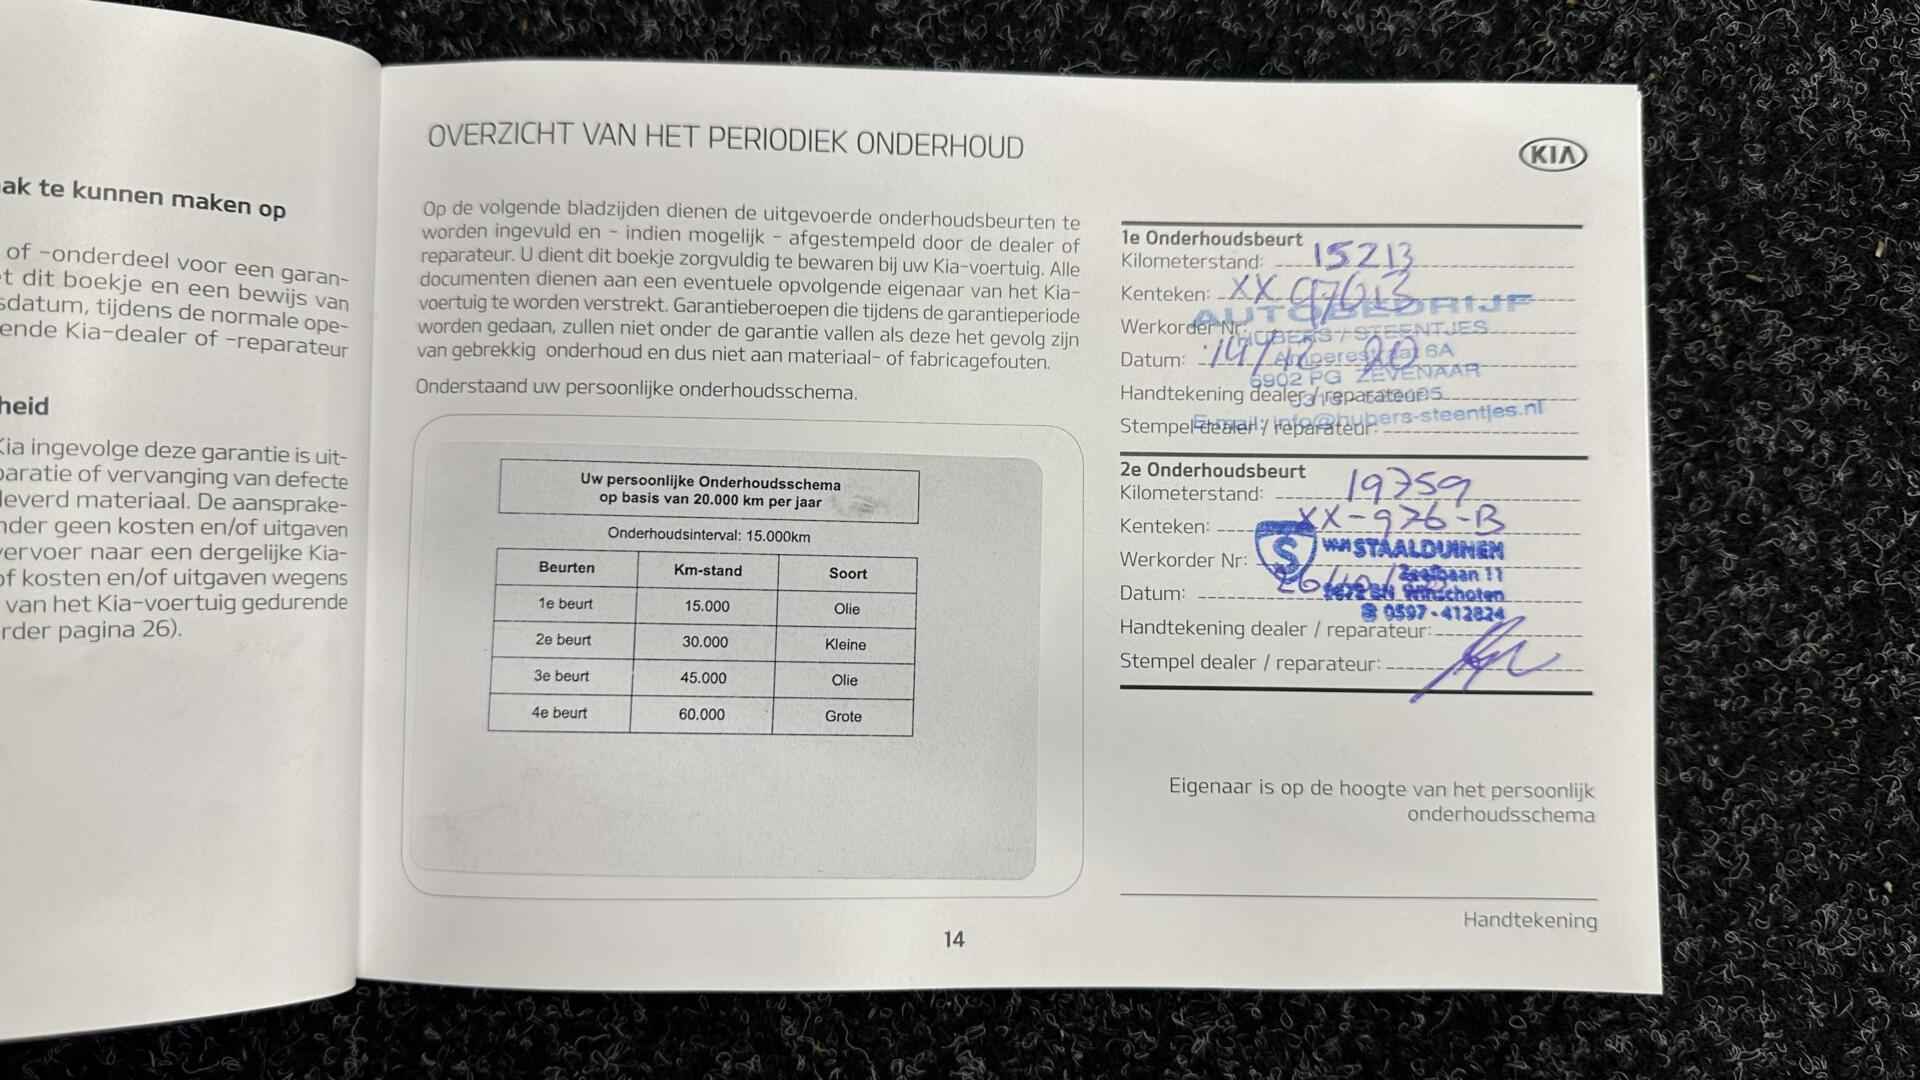 ak te kunnen maken op
of -onderdeel voor een garan-
t dit boekje en een bewijs van
sdatum, tijdens de normale ope-
ende Kia-dealer of -reparateur
heid
Kia ingevolge deze garantie is uit-
paratie of vervanging van defecte
leverd materiaal. De aansprake-
nder geen kosten en/of uitgaven
vervoer naar een dergelijke Kia-
of kosten en/of uitgaven wegens
van het Kia-voertuig gedurende
rder pagina 26).
OVERZICHT VAN HET PERIODIEK ONDERHOUD
KIA
Op de volgende bladzijden dienen de uitgevoerde onderhoudsbeurten te
worden ingevuld en - indien mogelijk - afgestempeld door de dealer of
reparateur. U dient dit boekje zorgvuldig te bewaren bij uw Kia-voertuig. Alle
documenten dienen aan een eventuele opvolgende eigenaar van het Kia-
voertuig te worden verstrekt. Garantieberoepen die tijdens de garantieperiode
worden gedaan, zullen niet onder de garantie vallen als deze het gevolg zijn
van gebrekkig onderhoud en dus niet aan materiaal- of fabricagefouten.
Onderstaand uw persoonlijke onderhoudsschema.
Uw persoonlijke Onderhoudsschema
op basis van 20.000 km per jaar
Onderhoudsinterval: 15.000km
Beurten Km-stand Soort
1e beurt 15.000 Olie
2e beurt 30.000 Kleine
3e beurt 45.000 Olie
4e beurt 60.000 Grote
1e Onderhoudsbeurt
Kilometerstand: 15213
Kenteken: XX
Werkorder Nr:
Datum:
Handtekening dealer / reparateur:
Stempel dealer / reparateur:
AUTOBEDRIJF
HUBERS / STEENTJES
6A
6902 PG ZEVENAAR
E-mail: info@hubers-steentjes.nl
2e Onderhoudsbeurt
Kilometerstand: 19759
Kenteken: XX-976-B
Werkorder Nr:
Datum:
Handtekening dealer / reparateur:
Stempel dealer / reparateur:
S
STAALDUINEN
11
Winschoten
0597-412824
Eigenaar is op de hoogte van het persoonlijk
onderhoudsschema
Handtekening
14